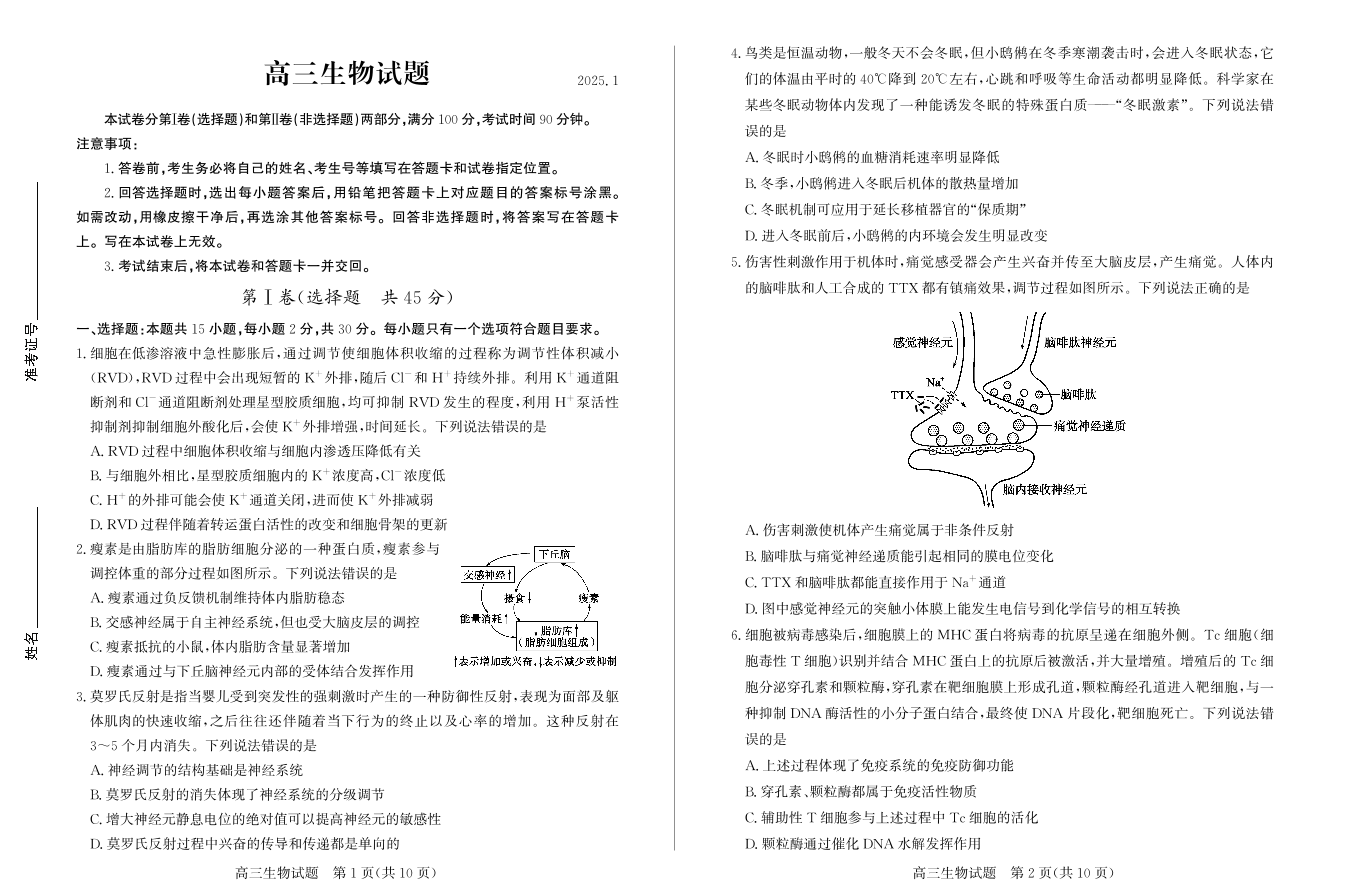 高三生物试题
2025.1
本试卷分第Ⅰ卷(选择题)和第Ⅱ卷(非选择题)两部分,满分 100 分,考试时间 90 分钟。
注意事项:
1. 答卷前,考生务必将自己的姓名、考生号等填写在答题卡和试卷指定位置。
2. 回答选择题时,选出每小题答案后,用铅笔把答题卡上对应题目的答案标号涂黑。
如需改动,用橡皮擦干净后,再选涂其他答案标号。回答非选择题时,将答案写在答题卡
上。写在本试卷上无效。
3. 考试结束后,将本试卷和答题卡一并交回。
第Ⅰ卷(选择题 共 45 分)
一、选择题:本题共 15 小题,每小题 2 分,共 30 分。每小题只有一个选项符合题目要求。
1. 细胞在低渗溶液中急性膨胀后,通过调节使细胞体积收缩的过程称为调节性体积减小
(RVD),RVD 过程中会出现短暂的 K⁺外排,随后 Cl⁻和 H⁺持续外排。利用 K⁺通道阻
断剂和 Cl⁻通道阻断剂处理星型胶质细胞,均可抑制 RVD 发生的程度,利用 H⁺泵活性
抑制剂抑制细胞外酸化后,会使 K⁺外排增强,时间延长。下列说法错误的是
A. RVD 过程中细胞体积收缩与细胞内渗透压降低有关
B. 与细胞外相比,星型胶质细胞内的 K⁺浓度高,Cl⁻浓度低
C. H⁺的外排可能会使 K⁺通道关闭,进而使 K⁺外排减弱
D. RVD 过程伴随着转运蛋白活性的改变和细胞骨架的更新
2. 瘦素是由脂肪库的脂肪细胞分泌的一种蛋白质,瘦素参与
调控体重的部分过程如图所示。下列说法错误的是
A. 瘦素通过负反馈机制维持体内脂肪稳态
B. 交感神经属于自主神经系统,但也受大脑皮层的调控
C. 瘦素抵抗的小鼠,体内脂肪含量显著增加
D. 瘦素通过与下丘脑神经元内部的受体结合发挥作用
下丘脑
交感神经↑
摄食↓
瘦素
能量消耗↑
脂肪库↑
(脂肪细胞组成)
↑表示增加或兴奋,↓表示减少或抑制
3. 莫罗氏反射是指当婴儿受到突发性的强刺激时产生的一种防御性反射,表现为面部及躯
体肌肉的快速收缩,之后往往还伴随着当下行为的终止以及心率的增加。这种反射在
3～5 个月内消失。下列说法错误的是
A. 神经调节的结构基础是神经系统
B. 莫罗氏反射的消失体现了神经系统的分级调节
C. 增大神经元静息电位的绝对值可以提高神经元的敏感性
D. 莫罗氏反射过程中兴奋的传导和传递都是单向的
高三生物试题 第 1 页(共 10 页)
准考证号
姓名
4. 鸟类是恒温动物,一般冬天不会冬眠,但小鸱鸺在冬季寒潮袭击时,会进入冬眠状态,它
们的体温由平时的 40℃降到 20℃左右,心跳和呼吸等生命活动都明显降低。科学家在
某些冬眠动物体内发现了一种能诱发冬眠的特殊蛋白质——“冬眠激素”。下列说法错
误的是
A. 冬眠时小鸱鸺的血糖消耗速率明显降低
B. 冬季,小鸱鸺进入冬眠后机体的散热量增加
C. 冬眠机制可应用于延长移植器官的“保质期”
D. 进入冬眠前后,小鸱鸺的内环境会发生明显改变
5. 伤害性刺激作用于机体时,痛觉感受器会产生兴奋并传至大脑皮层,产生痛觉。人体内
的脑啡肽和人工合成的 TTX 都有镇痛效果,调节过程如图所示。下列说法正确的是
感觉神经元
脑啡肽神经元
Na⁺
TTX
脑啡肽
痛觉神经递质
脑内接收神经元
A. 伤害刺激使机体产生痛觉属于非条件反射
B. 脑啡肽与痛觉神经递质能引起相同的膜电位变化
C. TTX 和脑啡肽都能直接作用于 Na⁺通道
D. 图中感觉神经元的突触小体膜上能发生电信号到化学信号的相互转换
6. 细胞被病毒感染后,细胞膜上的 MHC 蛋白将病毒的抗原呈递在细胞外侧。Tc 细胞(细
胞毒性 T 细胞)识别并结合 MHC 蛋白上的抗原后被激活,并大量增殖。增殖后的 Tc 细
胞分泌穿孔素和颗粒酶,穿孔素在靶细胞膜上形成孔道,颗粒酶经孔道进入靶细胞,与一
种抑制 DNA 酶活性的小分子蛋白结合,最终使 DNA 片段化,靶细胞死亡。下列说法错
误的是
A. 上述过程体现了免疫系统的免疫防御功能
B. 穿孔素、颗粒酶都属于免疫活性物质
C. 辅助性 T 细胞参与上述过程中 Tc 细胞的活化
D. 颗粒酶通过催化 DNA 水解发挥作用
高三生物试题 第 2 页(共 10 页)